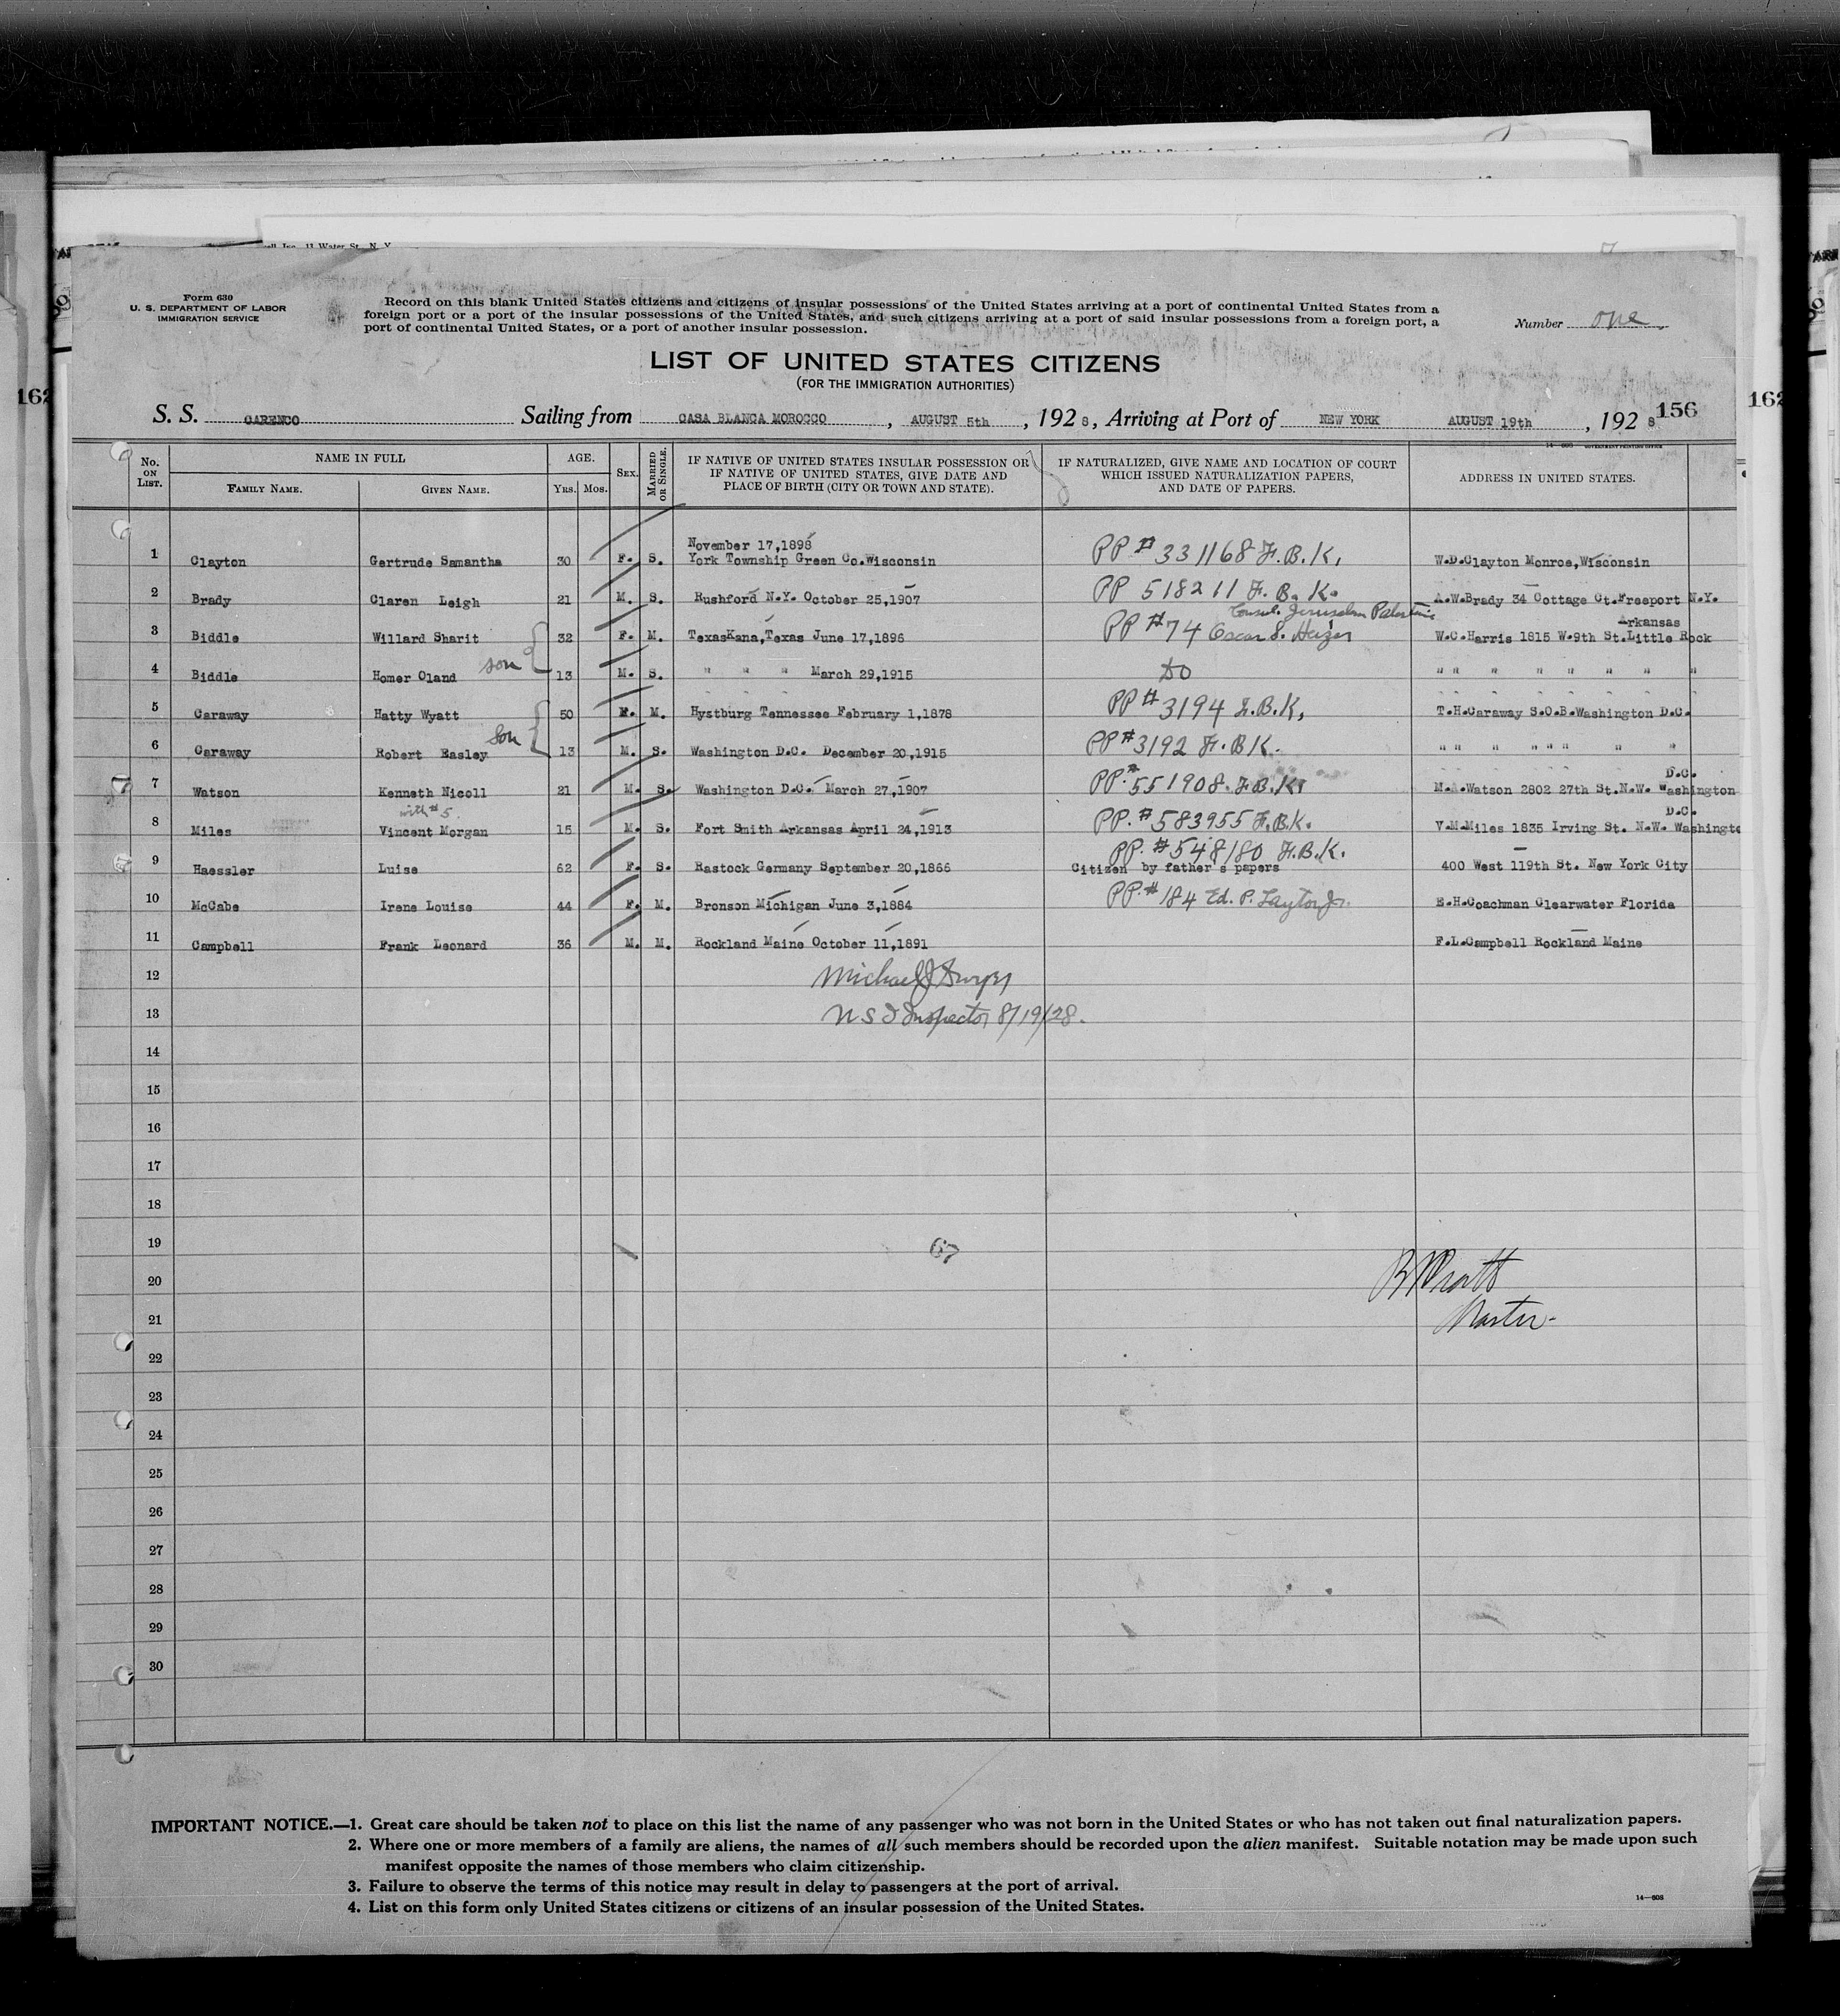 Form 630
U. S. DEPARTMENT OF LABOR
IMMIGRATION SERVICE
Record on this blank United States citizens and citizens of insular possessions of the United States arriving at a port of continental United States from a
foreign port or a port of the insular possessions of the United States, and such citizens arriving at a port of said insular possessions from a foreign port, a
port of continental United States, or a port of another insular possession.
Number one.
LIST OF UNITED STATES CITIZENS
(FOR THE IMMIGRATION AUTHORITIES)
S. S. CARENCO Sailing from CASA BLANCA MOROCCO, AUGUST 5th, 1928, Arriving at Port of NEW YORK AUGUST 19th, 1928 156
No. ON LIST. NAME IN FULL FAMILY NAME. GIVEN NAME. AGE. YRS. MOS. SEX. MARRIED OR SINGLE. IF NATIVE OF UNITED STATES INSULAR POSSESSION OR IF NATIVE OF UNITED STATES, GIVE DATE AND PLACE OF BIRTH (CITY OR TOWN AND STATE). IF NATURALIZED, GIVE NAME AND LOCATION OF COURT WHICH ISSUED NATURALIZATION PAPERS, AND DATE OF PAPERS. ADDRESS IN UNITED STATES.
1 Clayton Gertrude Samantha 30 F. S. November 17,1898 York Township Green Co.Wisconsin PP # 331168 F.B.K. W.D.Clayton Monroe,Wisconsin
2 Brady Claren Leigh 21 M. S. Rushford N.Y. October 25,1907 PP 518211 F. B. K. A.W.Brady 34 Cottage Ct.Freeport N.Y.
3 Biddle Willard Sharit 32 F. M. TexasKana,Texas June 17,1896 PP #74 Oscar S. Heizer Consul. Jerusalem Palestine W.C.Harris 1815 W.9th St.Little Rock Arkansas
4 Biddle Homer Oland son 13 M. S. " " " March 29,1915 DO " " " " " " " "
5 Caraway Hatty Wyatt 50 F. M. Hystburg Tennessee February 1,1878 PP # 3194 F.B.K. T.H.Caraway S.O.B.Washington D.C.
6 Caraway Robert Easley son 13 M. S. Washington D.C. December 20,1915 PP #3192 F.B.K. " " " " " " " "
7 Watson Kenneth Nicoll 21 M. S. Washington D.C. March 27,1907 PP.# 551908. F.B.K. M.A.Watson 2802 27th St.N.W. Washington D.C.
with #5.
8 Miles Vincent Morgan 15 M. S. Fort Smith Arkansas April 24,1913 PP. # 583955 F.B.K. V.M.Miles 1835 Irving St. N.W. Washingto D.C.
9 Haessler Luise 62 F. S. Rastock Germany September 20,1866 PP. #548180 F.B.K. Citizen by father's papers 400 West 119th St. New York City
10 McCabe Irene Louise 44 F. M. Bronson Michigan June 3,1884 PP.# 184 Ed. P. Layton Jr. E.H.Coachman Clearwater Florida
11 Campbell Frank Leonard 36 M. M. Rockland Maine October 11,1891 F.L.Campbell Rockland Maine
12 Michael J
13 Inspector 8/19/28.
14
15
16
17
18
19 67
20 Pratt
21 Master
22
23
24
25
26
27
28
29
30
IMPORTANT NOTICE.—1. Great care should be taken not to place on this list the name of any passenger who was not born in the United States or who has not taken out final naturalization papers.
2. Where one or more members of a family are aliens, the names of all such members should be recorded upon the alien manifest. Suitable notation may be made upon such
manifest opposite the names of those members who claim citizenship.
3. Failure to observe the terms of this notice may result in delay to passengers at the port of arrival.
4. List on this form only United States citizens or citizens of an insular possession of the United States.